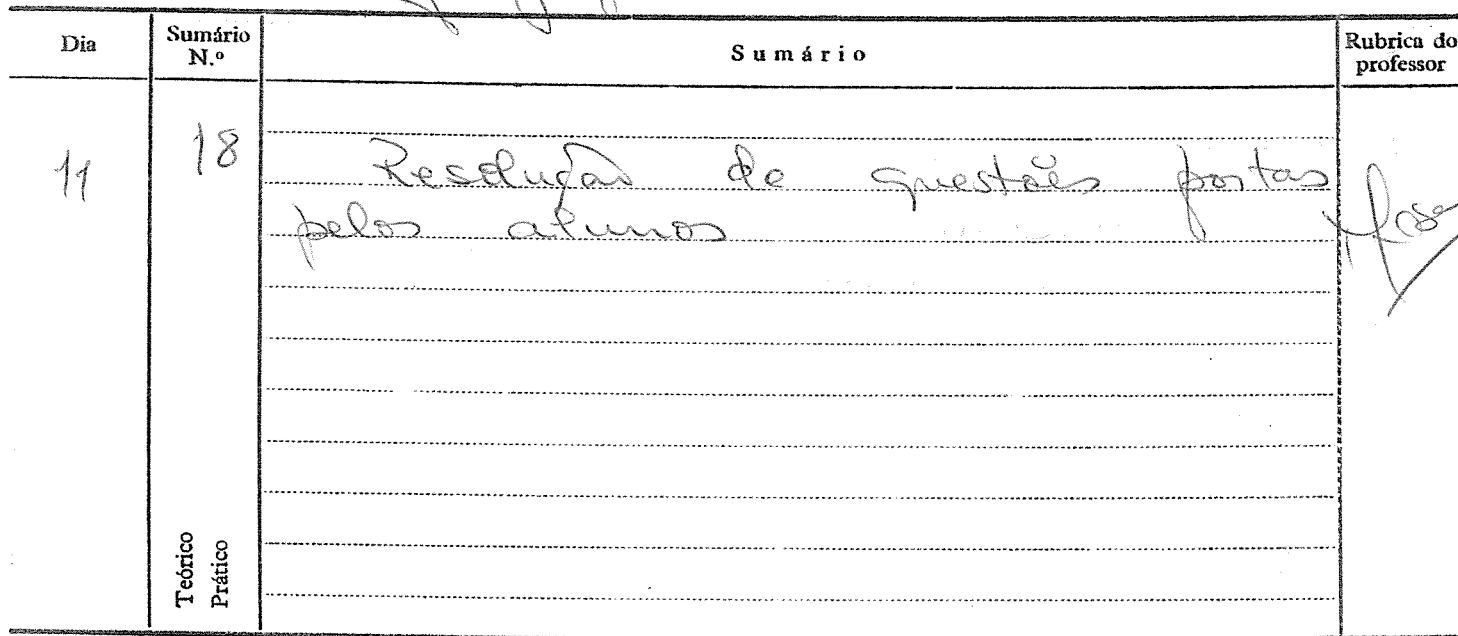 Dia
Sumário N.º
Sumário
Rubrica do professor
11
18
Resolução de questões postas
pelos alunos
Teórico
Prático